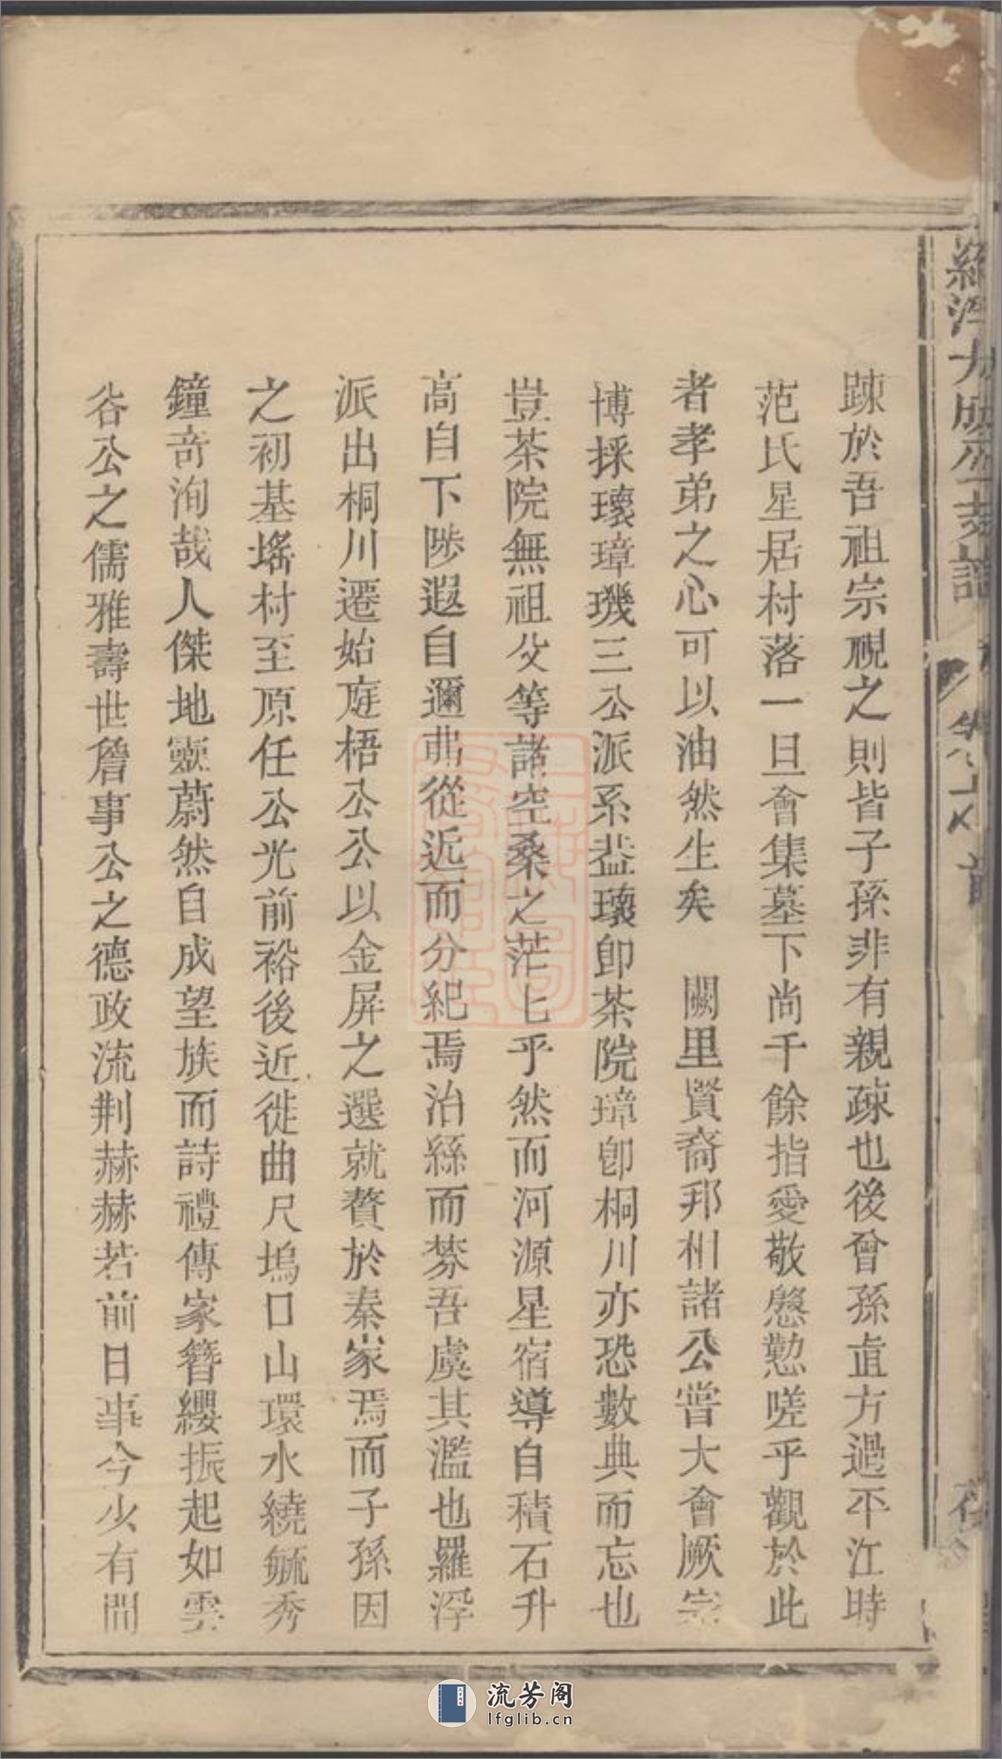 踈於吾祖宗視之則皆子孫非有親疎也後曾孫直方過平江時
范氏星居村落一旦會集墓下尚千餘指愛敬慇懃嗟乎觀於此
者孝弟之心可以油然生矣　闕里賢裔邦州諸公嘗大會厥宗
博採瓌璋璣三公派系葢瓌卽茶院璋卽桐川亦恐數典而忘也
豈茶院無祖父等諸空桑之茫匕乎然而河源星宿導自積石升
高自下陟遐自邇弗從近而分紀焉治絲而棼吾虞其濫也羅浮
派出桐川遷始庭梧公公以金屏之選就贅於秦家焉而子孫因
之初基塘村至原任公光前裕後近徙曲尺塢口山環水繞毓秀
鐘奇洵哉人傑地靈蔚然自成望族而詩禮傳家簪纓振起如雲
谷公之儒雅壽世詹事公之德政流荆赫赫若前日事今少有間
流芳阁
lfglib.cn